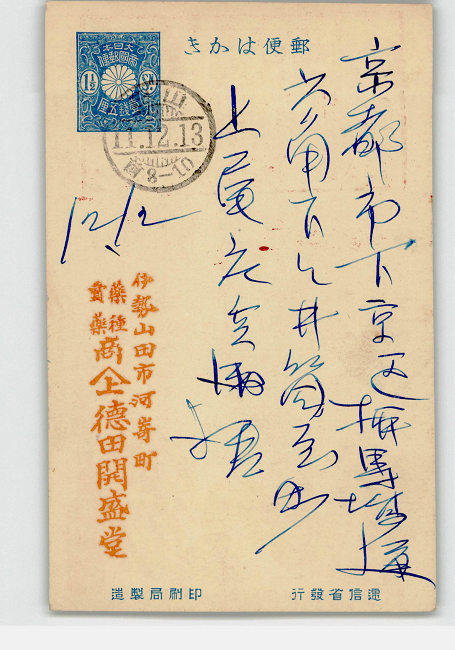 郵便はかき
大日本帝國郵便
1½ Sn.
壹錢五厘
山田
11.12.13
前8-10
京都市下京区柳馬場通
六角下ル井筒屋町
上尾庄兵衛様
12/12
伊勢山田市河崎町
藥種
賣藥
商
上
德田開盛堂
遞信省發行
印刷局製造